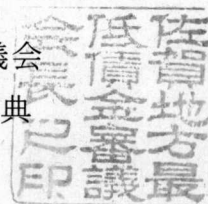 議会
典
佐賀地方最
低賃金審議
会長之印